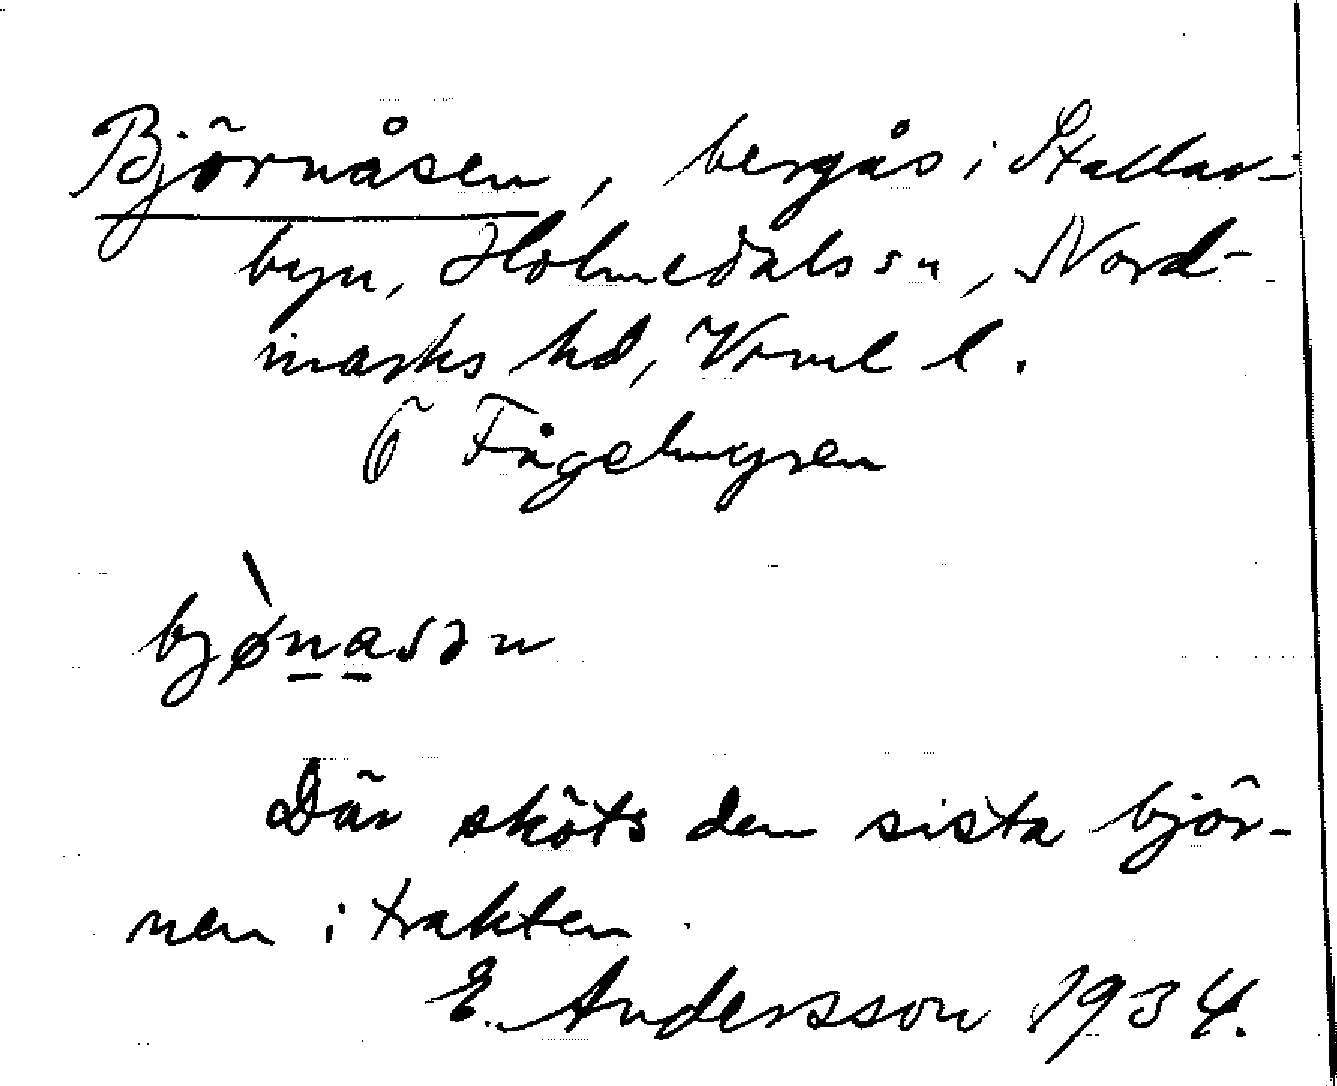 Björnåsen, bergås i Stallar-
byn, Holmedals sn, Nord-
marks hd, Vrml l.
Ö Fågelmyren
bjønasən
Där sköts den sista björ-
nen i trakten.
E. Andersson 1934.